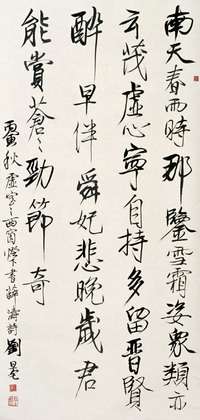 南天春雨時那鑒雪霜姿衆類亦
云茂虛心寧自持多留晉賢
醉早伴舜妃悲晚歲君
能賞蒼〻勁節奇
寅秋虛室之西窗下書薛濤詩劉